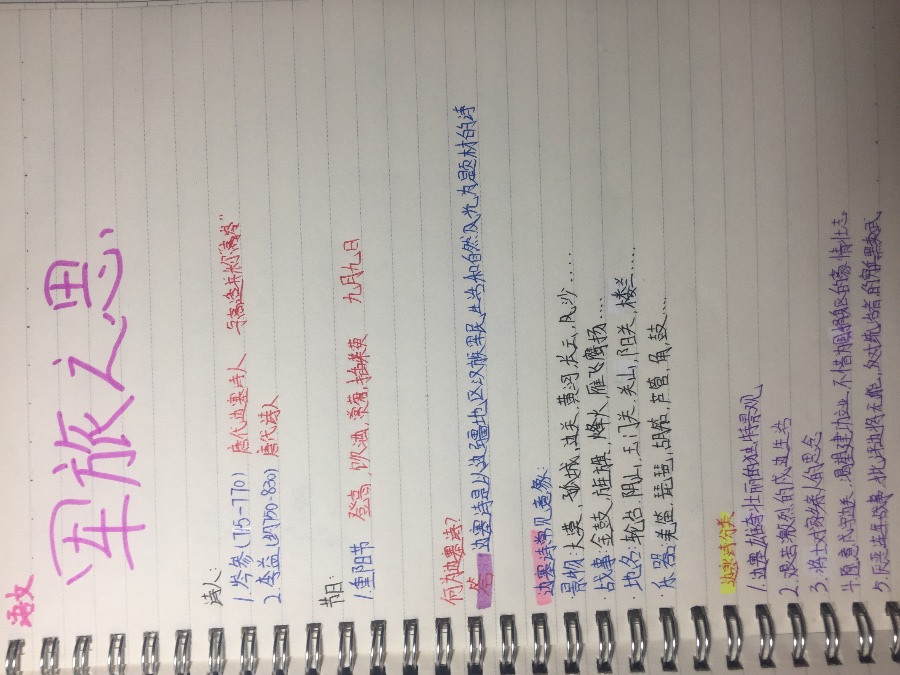 语文
军旅之思
诗人:
1.岑参(715-770) 唐代边塞诗人 与高适并称"高岑"
2.李益(约750-830) 唐代诗人
节日:
1.重阳节 登高,饮酒,赏菊,插茱萸 九月九日
何为边塞诗?
答 边塞诗是以边疆地区汉族军民生活和自然风光为题材的诗
边塞诗常见意象:
景物:大漠,孤城,边关,黄河,长云,风沙....
战事:金鼓,旌旗,烽火,雁飞鹰扬....
地名:轮台,阴山,玉门关,关山,阳关,楼兰....
乐器:羌笛,琵琶,胡笳,芦管,角,鼓....
边塞诗分类
1.边塞雄奇壮丽的独特景观
2.艰苦激烈的戍边生活
3.将士对家乡亲人的思念
4.愿意戍守边关,渴望建功立业,不惜为国捐躯的豪情壮志
5.厌恶连年战事,批评边将无能,反对统治者的穷兵黩武